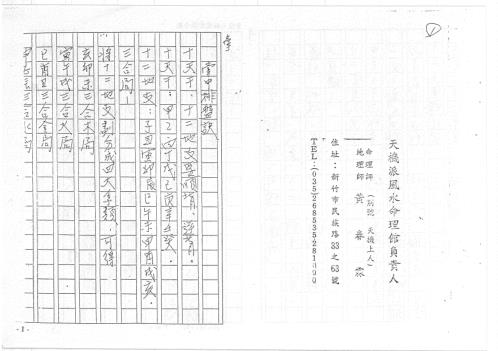 天機派風水命理館負責人
命理師
地理師
黃春霖
(別號 天機上人)
住址:新竹市民族路33之63號
TEL:(035)268535281000
掌中排盤訣
十天干,十二地支要順背,逆背。
十天干:甲乙丙丁戊己庚辛壬癸。
十二地支:子丑寅卯辰巳午未申酉戌亥。
三合局:
將十二地支劃分成四大年類,可得
亥卯未三合木局
寅午戌三合火局
巳酉丑三合金局
申子辰三合水局
-1-